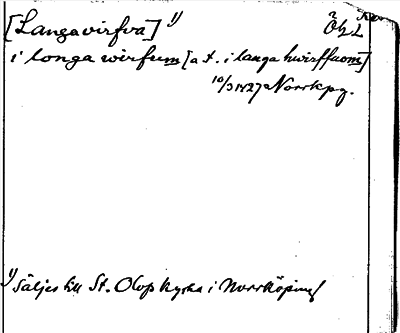 [Langavirfva] 1)
Ög L
i longa wirfum [a t. i langa hwirffuom]
10/3 1427 Norrkpg.
1) Säljes till St. Olop kyrka i Norrköping